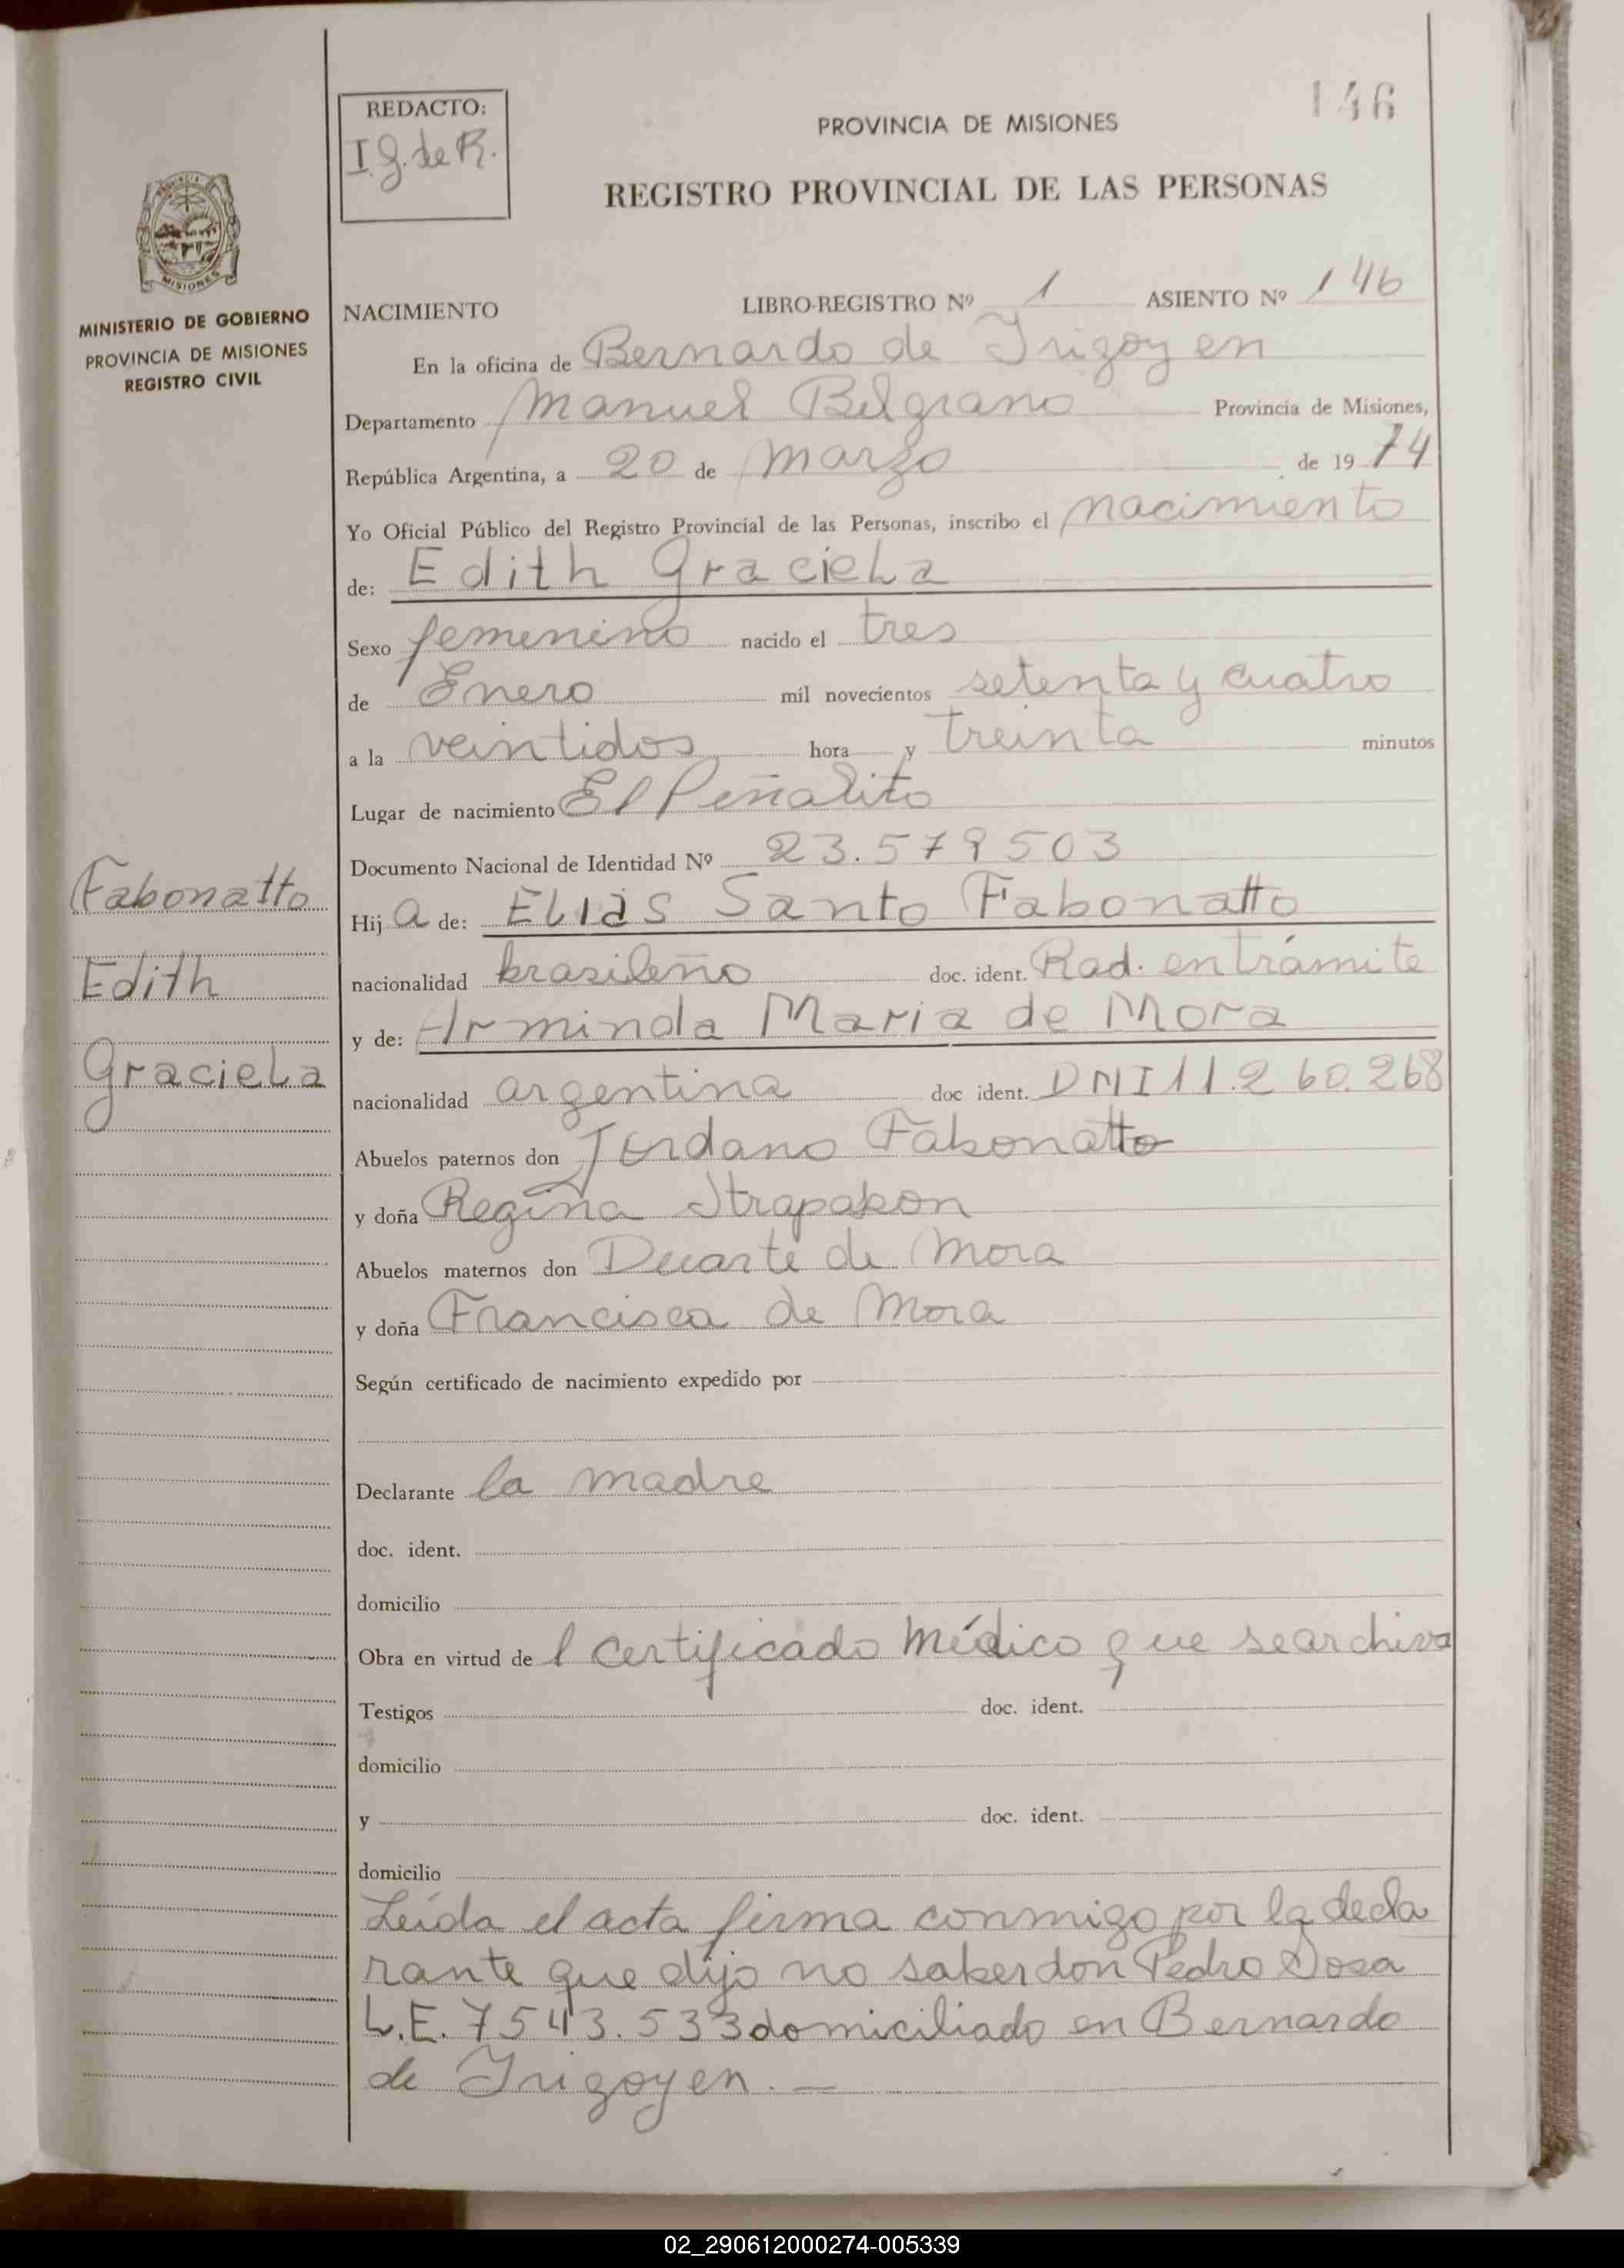 146
REDACTO:
I. G. de R.
PROVINCIA DE MISIONES
REGISTRO PROVINCIAL DE LAS PERSONAS
MISIONES
MINISTERIO DE GOBIERNO
PROVINCIA DE MISIONES
REGISTRO CIVIL
NACIMIENTO LIBRO-REGISTRO Nº 1 ASIENTO Nº 146
En la oficina de Bernardo de Irigoyen
Departamento Manuel Belgrano Provincia de Misiones,
República Argentina, a 20 de marzo de 1974
Yo Oficial Público del Registro Provincial de las Personas, inscribo el nacimiento
de: Edith Graciela
Sexo femenino nacido el tres
de Enero mil novecientos setenta y cuatro
a la veintidos hora y treinta minutos
Lugar de nacimiento El Peñalito
Documento Nacional de Identidad Nº 23.579503
Fabonatto
Edith
Graciela
Hija de: Eliàs Santo Fabonatto
nacionalidad brasileño doc. ident. Rad. en trámite
y de: Arminda Maria de Mora
nacionalidad argentina doc ident. DNI 11.260.268
Abuelos paternos don Jordano Fabonatto
y doña Regina
Abuelos maternos don Duarte de Mora
y doña Francisca de Mora
Según certificado de nacimiento expedido por
Declarante la madre
doc. ident.
domicilio
Obra en virtud del certificado Médico que se archiva
Testigos doc. ident.
domicilio
y doc. ident.
domicilio
Leída el acta firma conmigo por la decla
rante que dijo no saber don Pedro Sosa
L.E. 7543.533 domiciliado en Bernardo
de Irigoyen. —
02_290612000274-005339